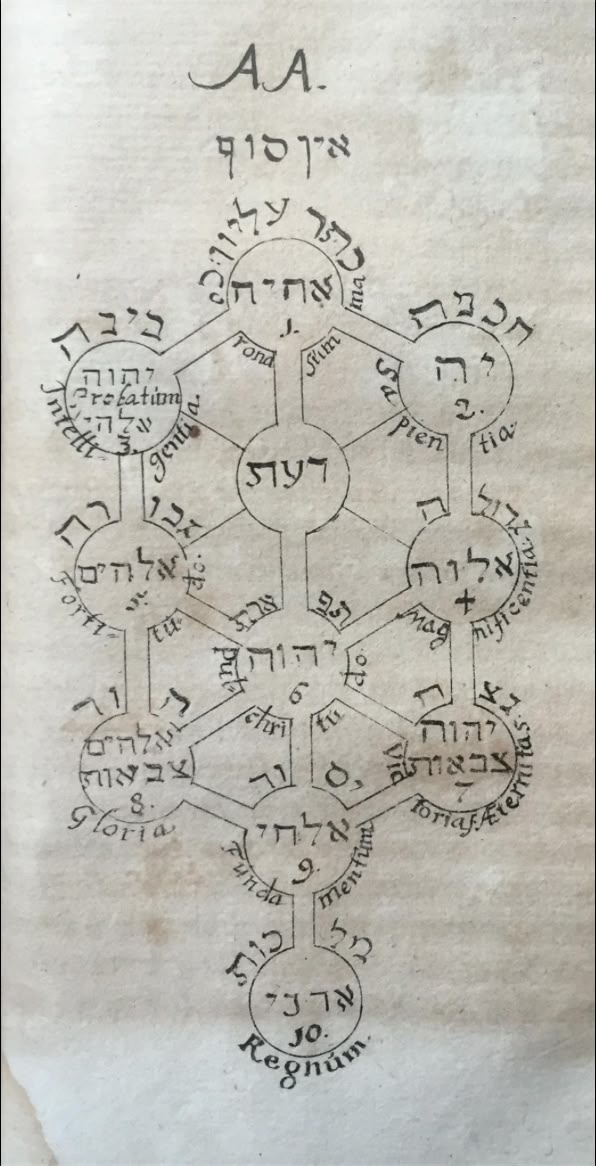 AA.
אין סוף
כתר עליון
אהיה
1.
co rona Sum ma
חכמה
יה
2.
Sa pien tia
בינה
יהוה
Probatúm
אלהי
3.
Intelli gentia
דעת
גדולה
אלוה
4
Mag nificentia.
גבורה
אלהים
5
Forti tú do.
תפארת
יהוה
6
pul chri tú do.
נצח
יהוה
צבאות
7
Æternitas
הוד
אלהים
צבאות
8.
Gloria
יסוד
אלחי
9.
Funda mentúm
מלכות
אדני
10.
Regnúm.